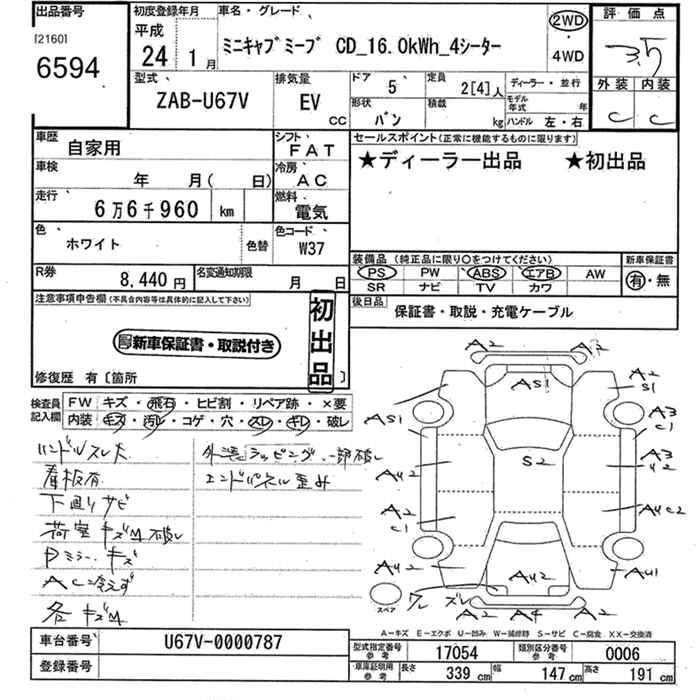 出品番号
[2160]
6594
初度登録年月
平成
24 1月
車名・グレード
ミニキャブミーブ CD_16.0kWh_4シーター
2WD
・
4WD
評価点
3.5
外装 内装
C C
型式
ZAB-U67V
排気量
EV
cc
ドア
5
定員
2[4]人
ディーラー・並行
形状
バン
積載
kg
モデル年式 年
ハンドル 左・右
車歴
自家用
シフト
FAT
車検
年 月( 日)
冷房
AC
走行
6万6千960 km
燃料
電気
色
ホワイト
色替
色コード
W37
R券
8,440円
名変通知期限
月 日
セールスポイント(正常に機能するものに限ります)
★ディーラー出品 ★初出品
装備品(純正品に限り○をつけてください)
PS PW ABS エアB AW
SR ナビ TV カワ
新車保証書
有・無
後日品
保証書・取説・充電ケーブル
注意事項申告欄(不具合内容等は具体的に記入して下さい)
新車保証書・取説付き
初出品
修復歴 有〔箇所 〕
検査員記入欄
FW キズ・飛石・ヒビ割・リペア跡・×要
内装 キズ・汚レ・コゲ・穴・スレ・ギレ・破レ
ハンドルスレ大
看板有
下廻りサビ
荷室キズM破レ
Pミラーキズ
AC冷えず
各キズM
外装ラッピング、一部破レ
エンドパネル歪み
A2 A2
AS1
A2
S1
AS1
A3
C1
S2
AU2
A3
U2
A2
C1
AUC2
AU2
AU2
AU1
スペア
ワレ ズレ
A2 A4 A2
A-キズ E-エクボ U-凹み W-補修跡 S-サビ C-腐食 XX-交換済
車台番号
U67V-0000787
登録番号
型式指定番号
参考
17054
類別区分番号
参考
0006
車庫証明用
参考
長さ
339 cm
幅
147 cm
高さ
191 cm